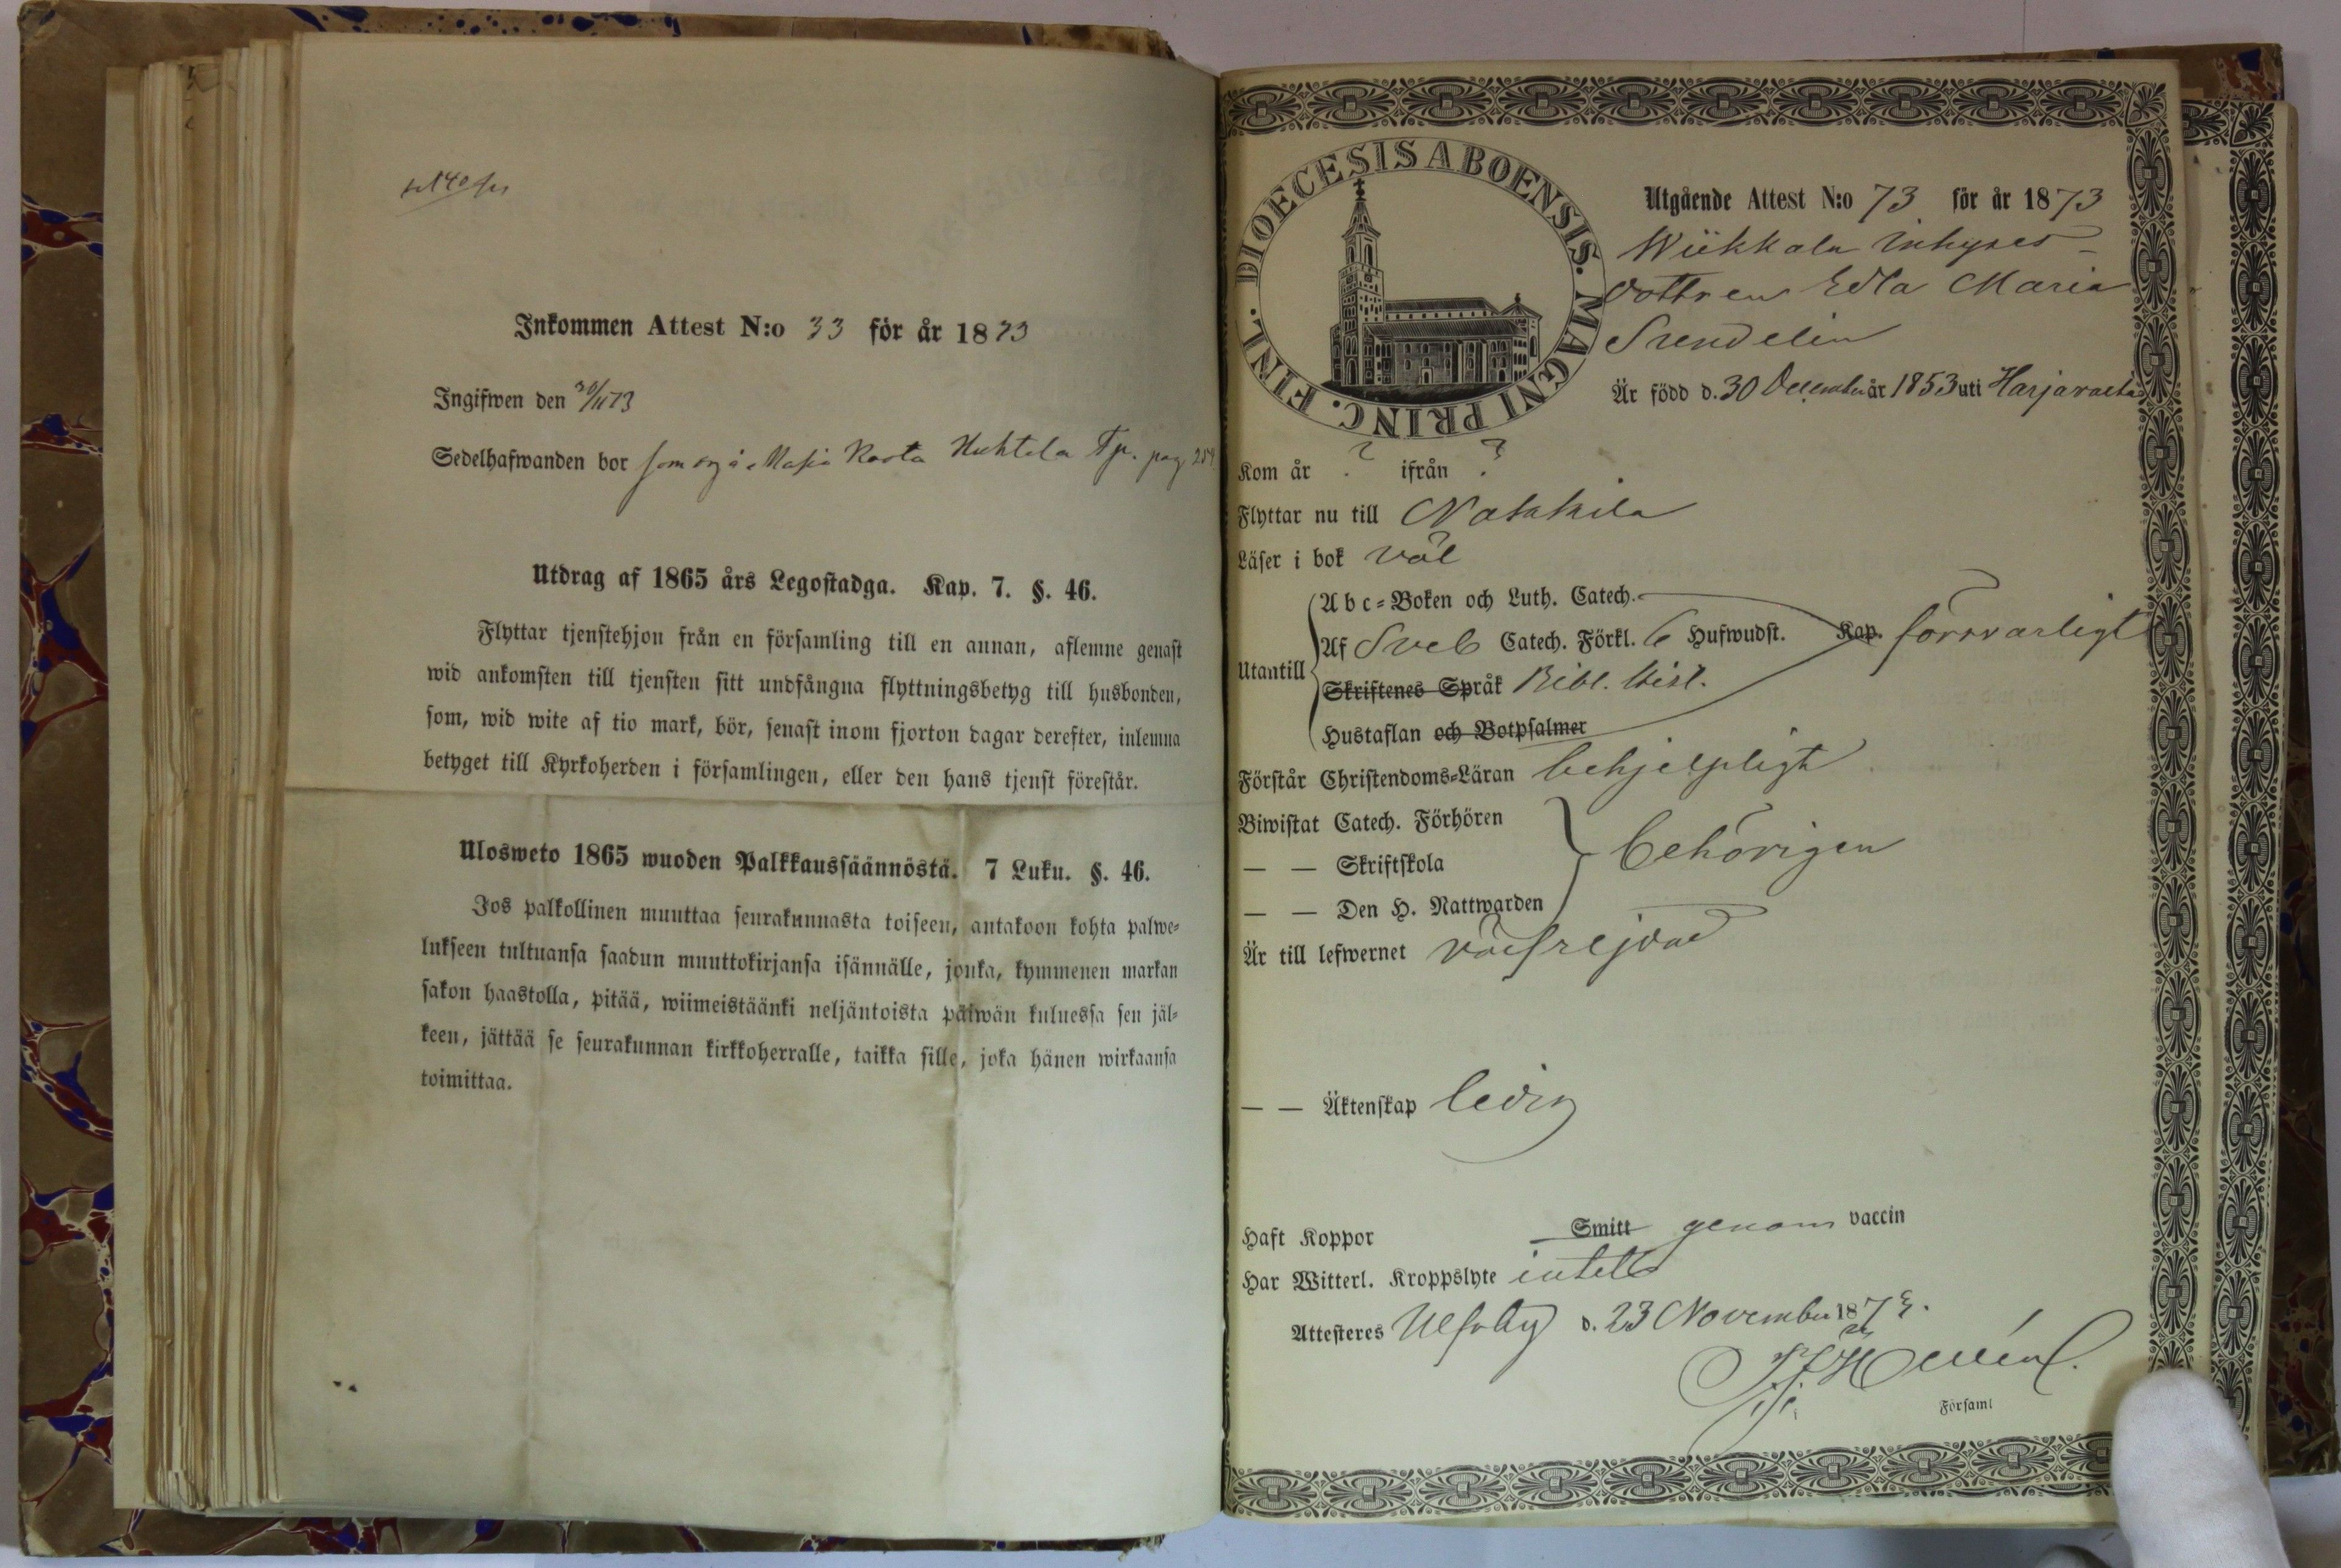 Inkommen Attest N:o 33 för år 1873
Ingifwen den 30/11 73
Sedelhafwanden bor som å Rosta Huhtela Tp. pag.
Utdrag af 1865 års Legostadga. Kap. 7. §. 46.
Flyttar tjenstehjon från en församling till en annan, aflemne genast
wid ankomsten till tjensten sitt undfångna flyttningsbetyg till husbonden,
som, wid wite af tio mark, bör, senast inom fjorton dagar derefter, inlemna
betyget till Kyrkoherden i församlingen, eller den hans tjenst förestår.
Ulosweto 1865 wuoden Palkkaussäännöstä. 7 Luku. §. 46.
Jos palkollinen muuttaa seurakunnasta toiseen, antakoon kohta palwe-
lukseen tultuansa saadun muuttokirjansa isännälle, jonka, kymmenen markan
sakon haastolla, pitää, wiimeistäänki neljäntoista päiwän kuluessa sen jäl-
keen, jättää se seurakunnan kirkkoherralle, taikka sille, joka hänen wirkaansa
toimittaa.
DIOECESIS ABOENSIS. MAGNI PRINC. FINL.
Utgående Attest N:o 73 för år 1873
Wiikkala Inhyses-
dottren Edla Maria
Svendelin
Är född d. 30 December år 1853 uti Harjavalta
Kom år ? ifrån ?
Flyttar nu till Nakkila
Läser i bok väl
Utantill
Abc-Boken och Luth. Catech.
Af Sveb Catech. Förkl. 6 Hufwudst. Kap. försvarligt
Skriftenes Språk Bibl. Hist.
Hustaflan och Botpsalmer
Förstår Christendoms-Läran behjelpligt
Biwistat Catech. Förhören
— — Skriftskola behörigen
— — Den H. Nattwarden
Är till lefwernet välfrejdad
— — Äktenskap ledig
Haft Koppor Smitt genom vaccin
Har Witterl. Kroppslyte intet
Attesteres Ulfsby d. 23 November 1873.
Församl